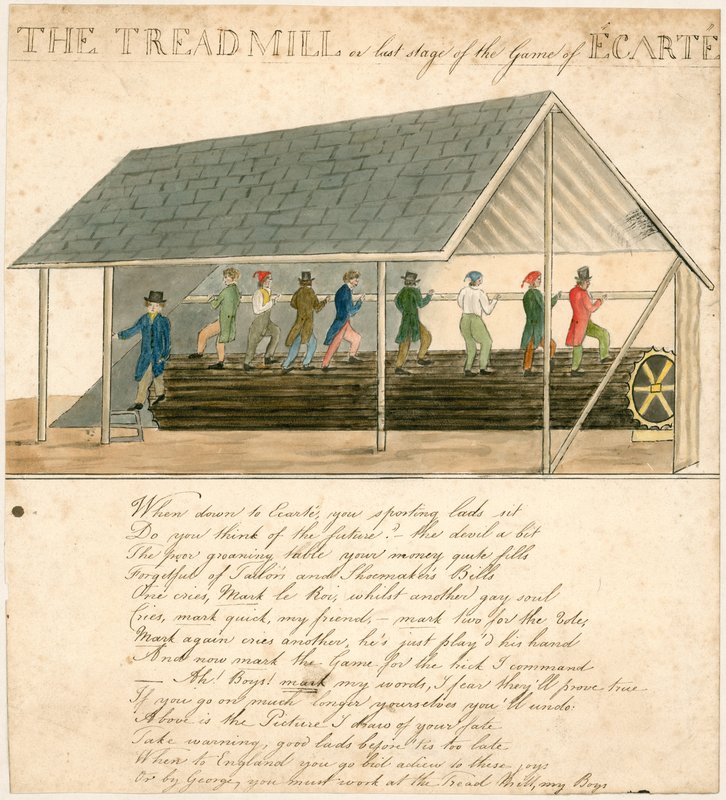 THE TREADMILL or last stage of the Game of ÉCARTÉ
When down to Ecarté, you sporting lads sit
Do you think of the future? – the devil a bit
The poor groaning table your money quite fills
Forgetful of Tailor's and Shoemaker's Bills
One cries, Mark le Roi, whilst another gay soul
Cries, mark quick, my friend, – mark two for the Vole,
Mark again cries another, he's just play'd his hand
And now mark the Game, for the trick I command
— Ah! Boys! mark my words, I fear they'll prove true
If you go on much longer yourselves you'll undo.
Above is the Picture I draw of your fate
Take warning, good lads before 'tis too late
When to England you go bid adieu to these joys
Or by George, you must work at the Tread Mill, my Boys